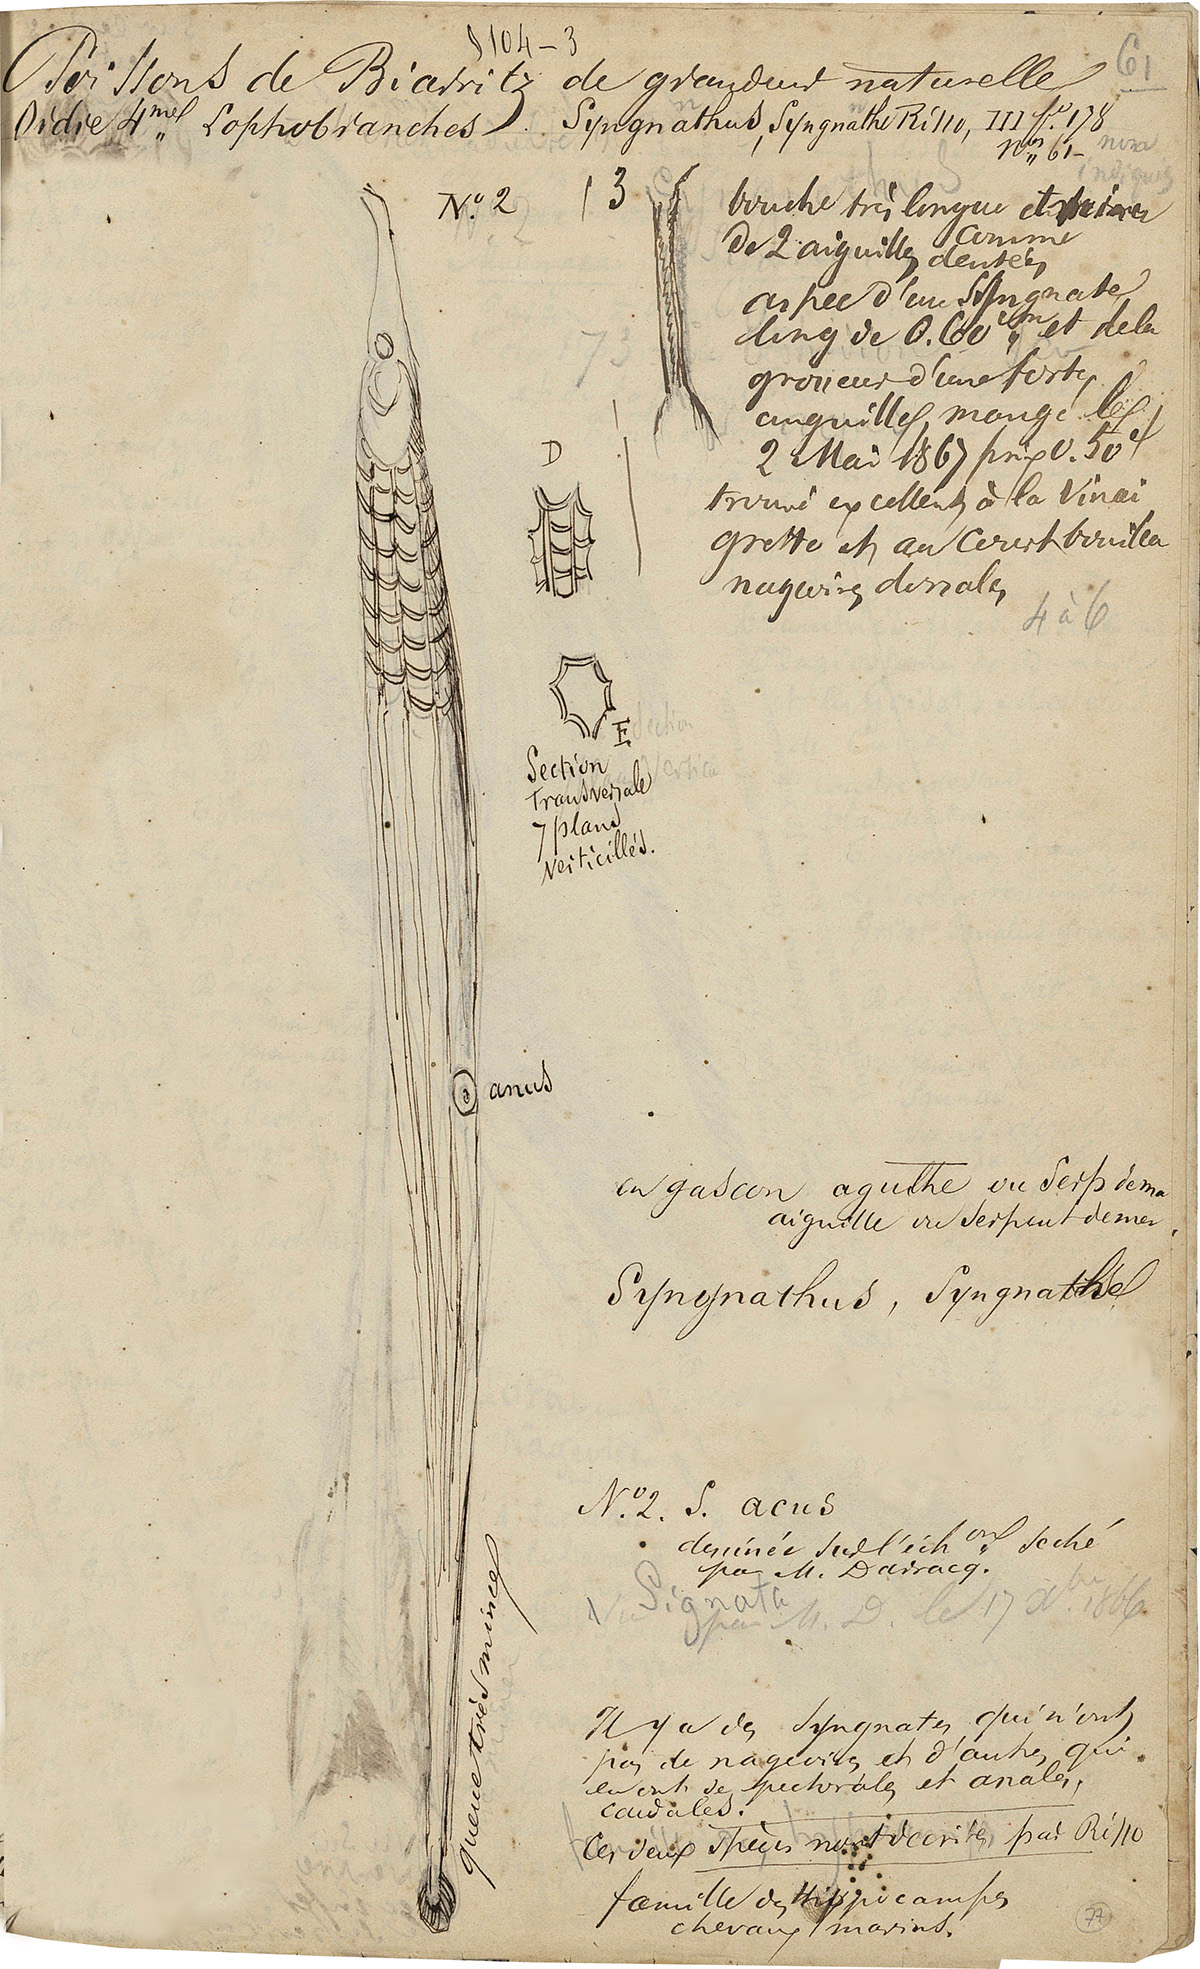 S 104-3
61
Poissons de Biarritz de grandeur naturelle
Ordre 4me Lophobranches. Syngnathus, Syngnathe Risso, III fo. 178
No 61-
non
indiqué
No. 2
13
bouche très longue et
comme
de 2 aiguilles dentées
aspec d'un Syngnate
long de 0.60 cm et dela
grosseur d'une forte
anguille, mangé le
2 Mai 1867 prix 0.50
trouvé excellent à la vinai
grette et au court bouillon
nageoires dorsales
4 à 6
73
D
E
Section
Transversale
7 plans
Verticillés.
anus
en gascon agulhe ou Serp dema
aiguille ou Serpent demer.
Syngnathus, Syngnathe
No. 2. S. acus
dessinée sur l'échon seché
par M. Darracq.
Signata
Vu par M. D. le 17 Xbre 1866
queue très mince
Il y a des Syngnates qui n'ont
pas de nageoires et d'autres qui
en ont des pectorales et anales,
caudales.
Ces deux espèces sont décrites par Risso
famille des Hippocampes
chevaux marins.
77